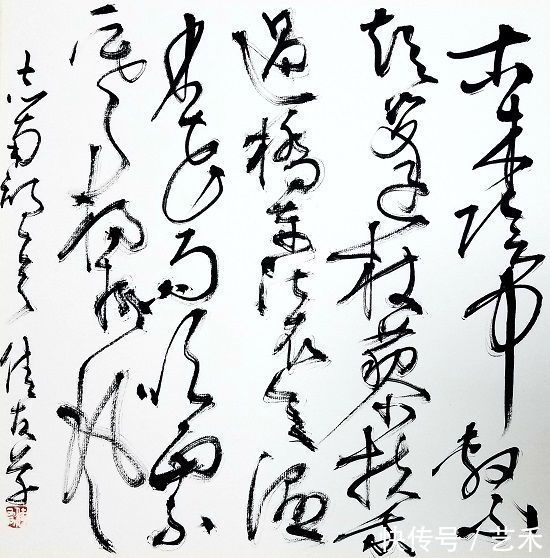 古木陰中繫
短篷杖藜扶我
過橋東沾衣欲濕
杏花雨吹面不
寒楊柳風
志南 佳友草
快传号/艺禾